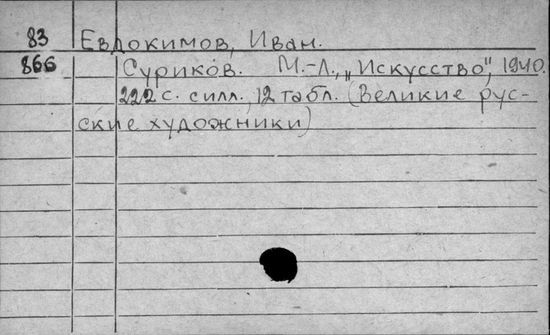 83 Евдокимов, Иван.
866 Суриков. М.-Л., „Искусство", 1940.
222 с. с илл., 12 табл. (Великие рус-
ские художники)